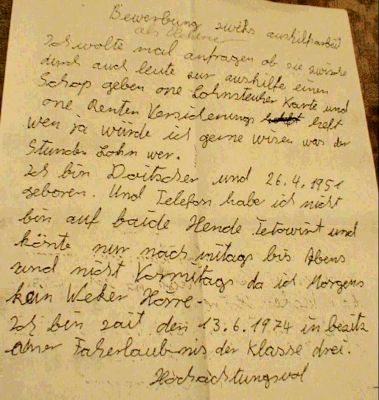 Bewerbung zwiks aushilfarbeit
als
Ich wolte mal anfragen ob sie zwische
durch auch leute zur aushilfe einen
Schop geben one Lohnsteuher Karte und
one Renten Versicherungs heft
wen ja würde ich gerne wisen was der
Stunden Lohn wer.
Ich bin Doitscher und 26.4.1951
geboren. Und Telefon habe ich nicht
bin auf beide Hende Tetowirt und
könte nur nach mitags bis Abens
und nicht Vormitags da ich Morgens
kein Weker Hörre.
Ich bin zait den 13.6.1974 in besitz
einer Faherlaubnis der Klasse drei.
Hochachtungsvol